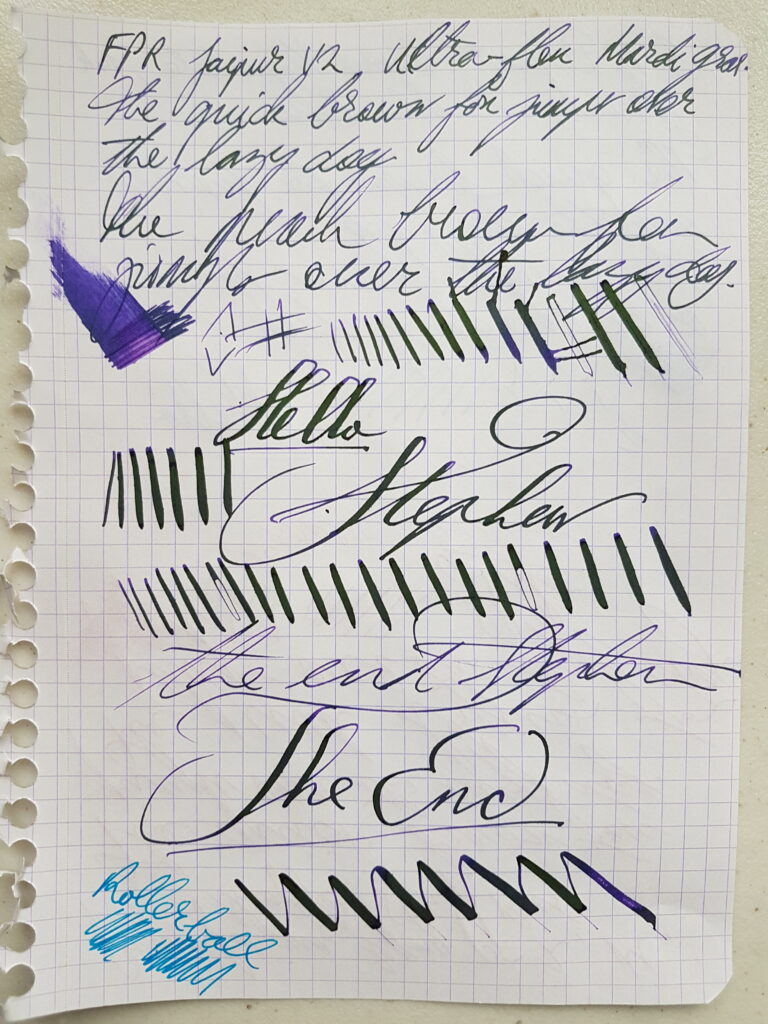 FPR Jaipur V2 Ultra-flex Mardi gras.
The quick brown fox jumps over
the lazy dog
the brown fox
jumps over the lazy dog.
Hello
Stephen
the end Stephen
The End
Rollerball